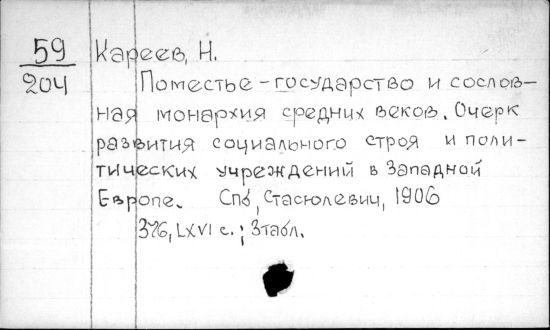 59 Кареев, Н.
204 Поместье - государство и сослов-
ная монархия средних веков. Очерк
развития социального строя и поли-
тических учреждений в Западной
Европе. Спб, Стасюлевич, 1906
376, LXVI с.; 3табл.